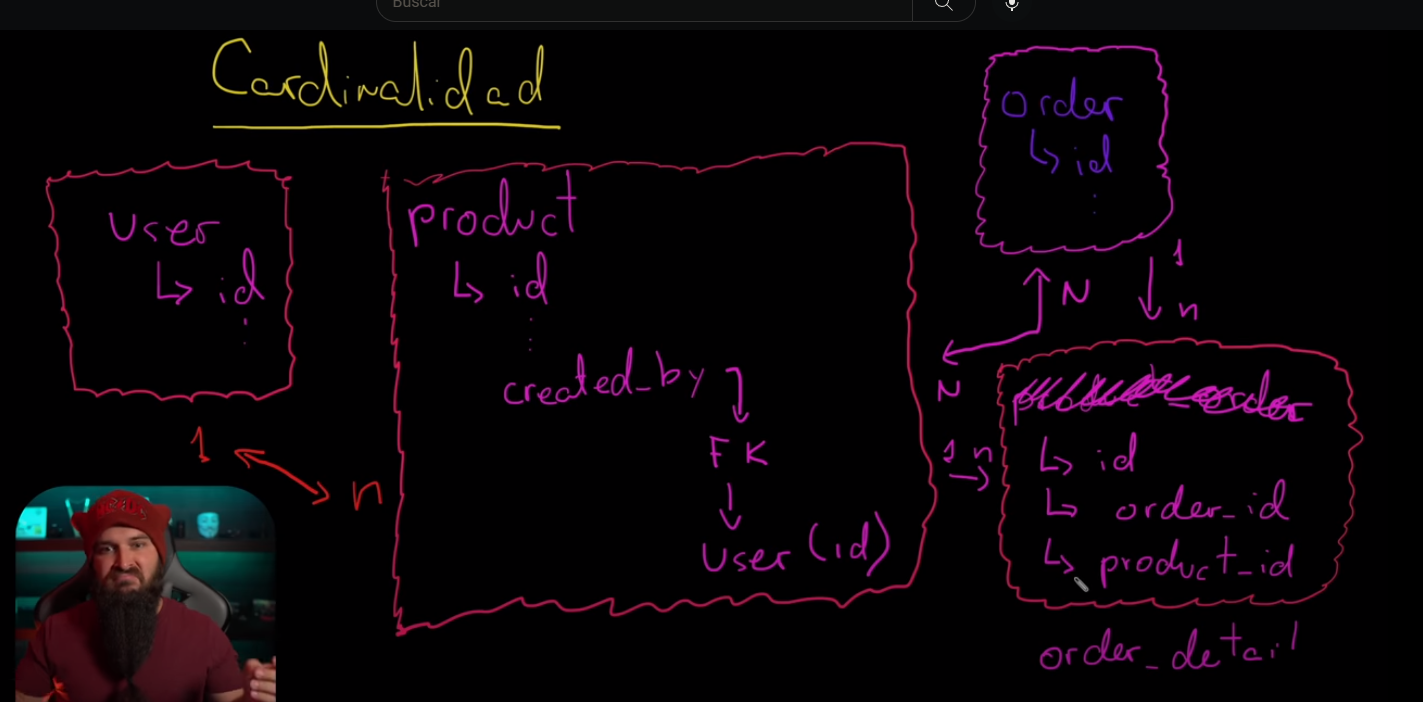 Buscar
Cardinalidad
user
↳ id
product
↳ id
created_by
FK
user (id)
1
n
order
↳ id
1
N
n
N
1 n
product_order
↳ id
↳ order_id
↳ product_id
order_detail